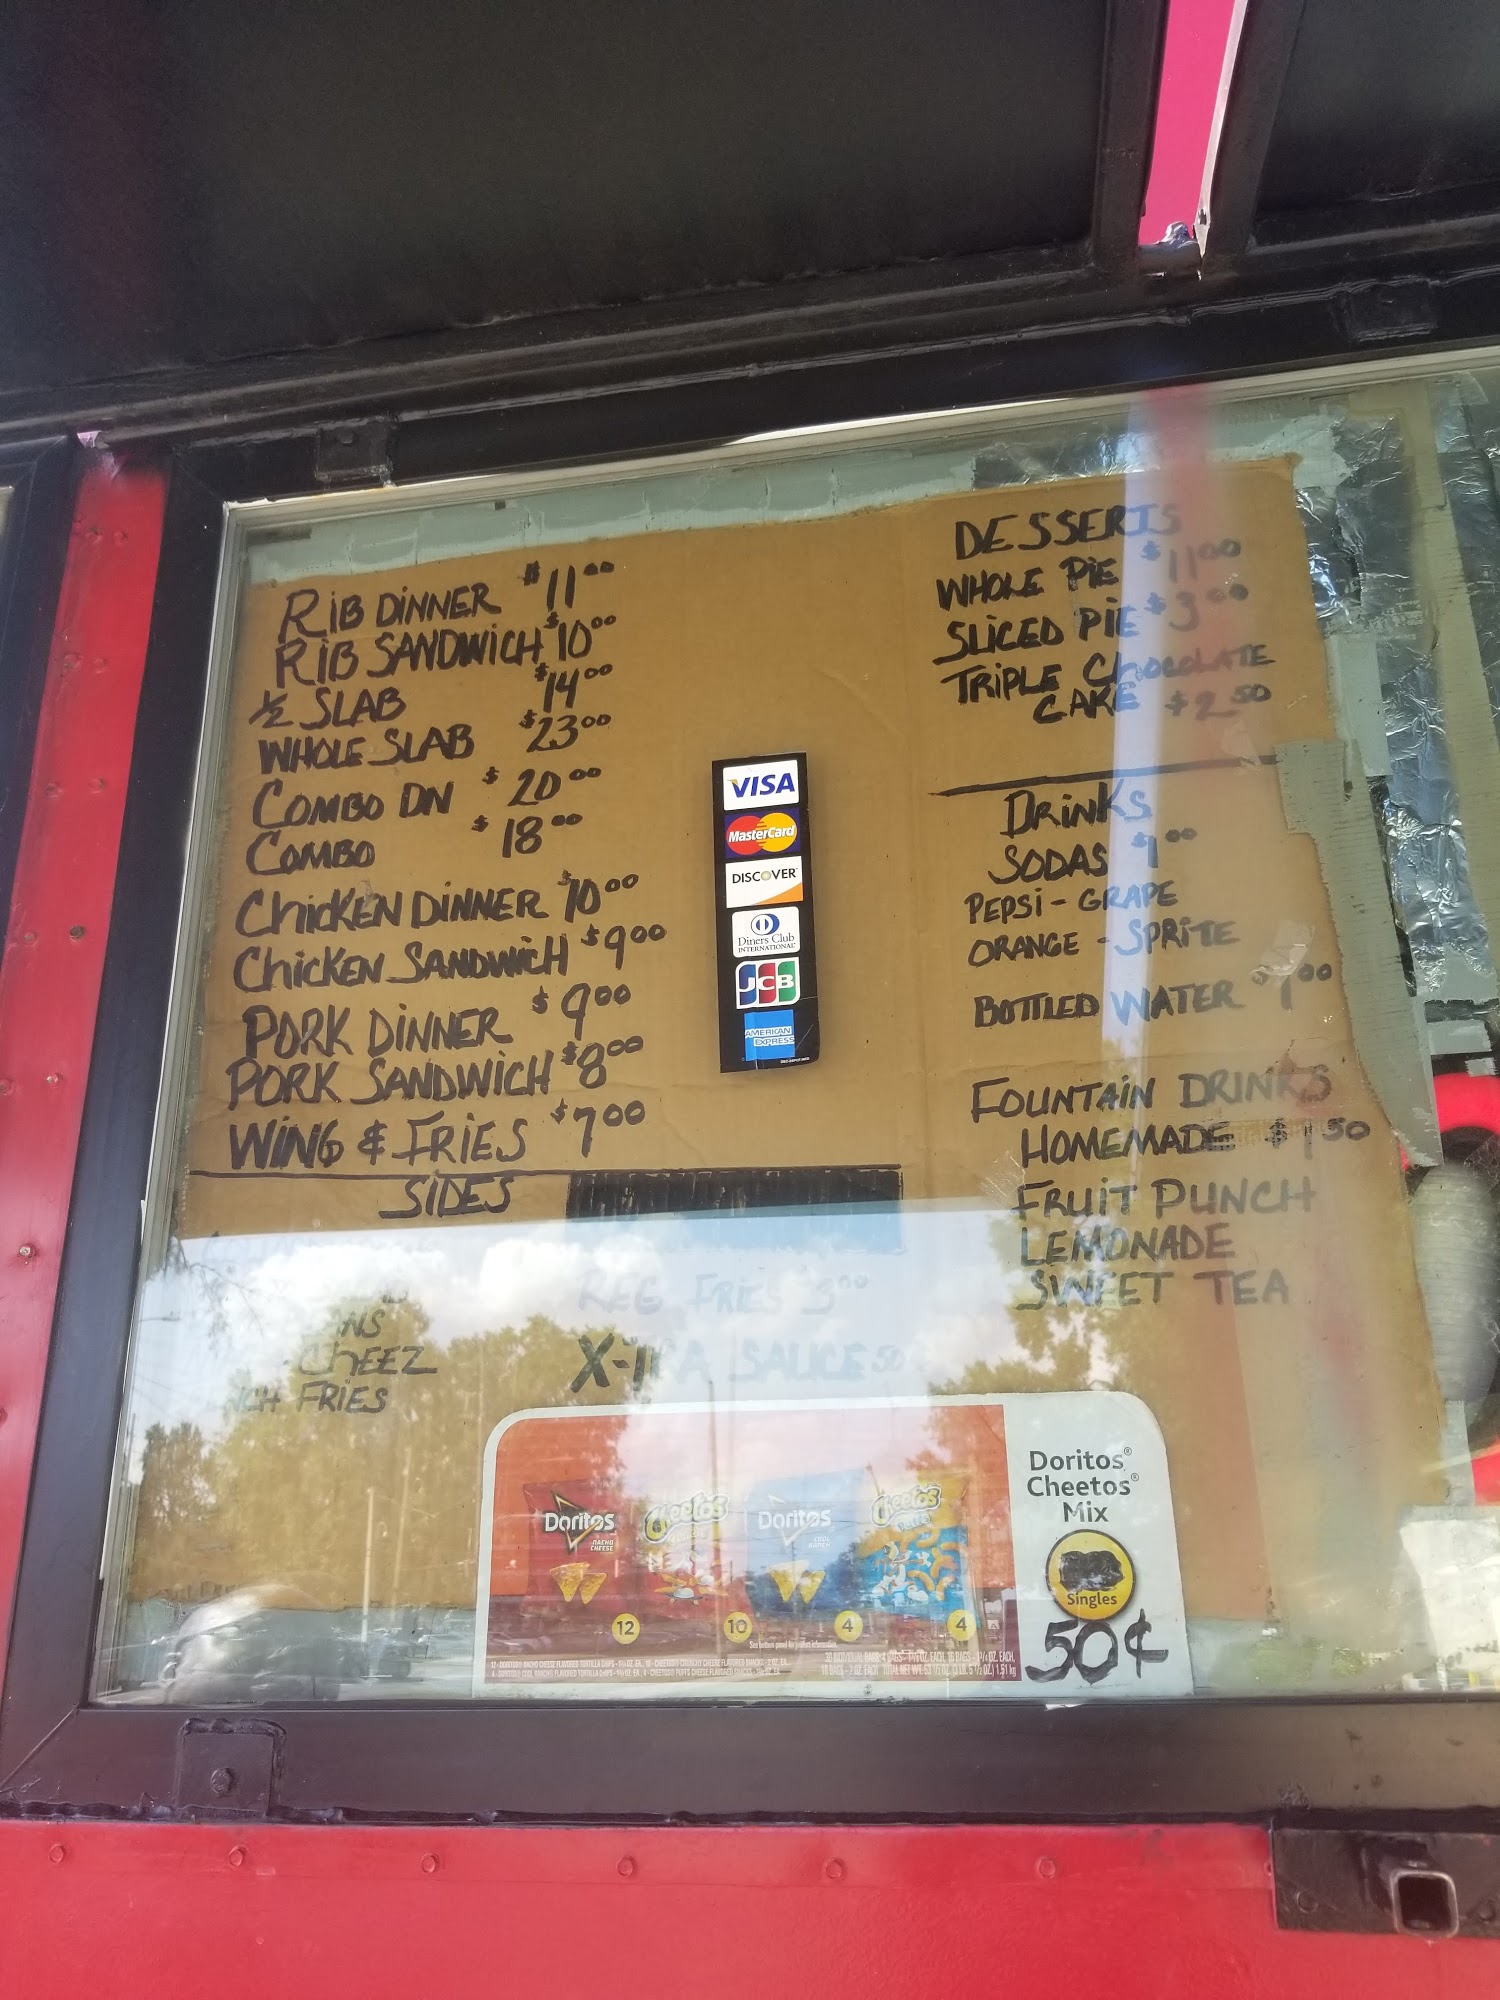 RIB DINNER $11.00
RIB SANDWICH $10.00
1/2 SLAB $14.00
WHOLE SLAB $23.00
COMBO DN $20.00
COMBO $18.00
CHICKEN DINNER $10.00
CHICKEN SANDWICH $9.00
PORK DINNER $9.00
PORK SANDWICH $8.00
WING & FRIES $7.00
SIDES
CHEEZ
FRIES
REG FRIES 3.00
SAUCE 50
VISA
MasterCard
DISCOVER
Diners Club
INTERNATIONAL
JCB
AMERICAN
EXPRESS
DESSERTS
WHOLE PIE $11.00
SLICED PIE $3.00
TRIPLE CHOCOLATE
CAKE $2.50
DRINKS
SODAS $1.00
PEPSI - GRAPE
ORANGE - SPRITE
BOTTLED WATER $1.00
FOUNTAIN DRINKS
HOMEMADE $1.50
FRUIT PUNCH
LEMONADE
SWEET TEA
Doritos®
Cheetos®
Mix
Singles
50¢
Doritos
NACHO
CHEESE
Cheetos
Doritos
COOL
RANCH
Cheetos
12
10
4
4